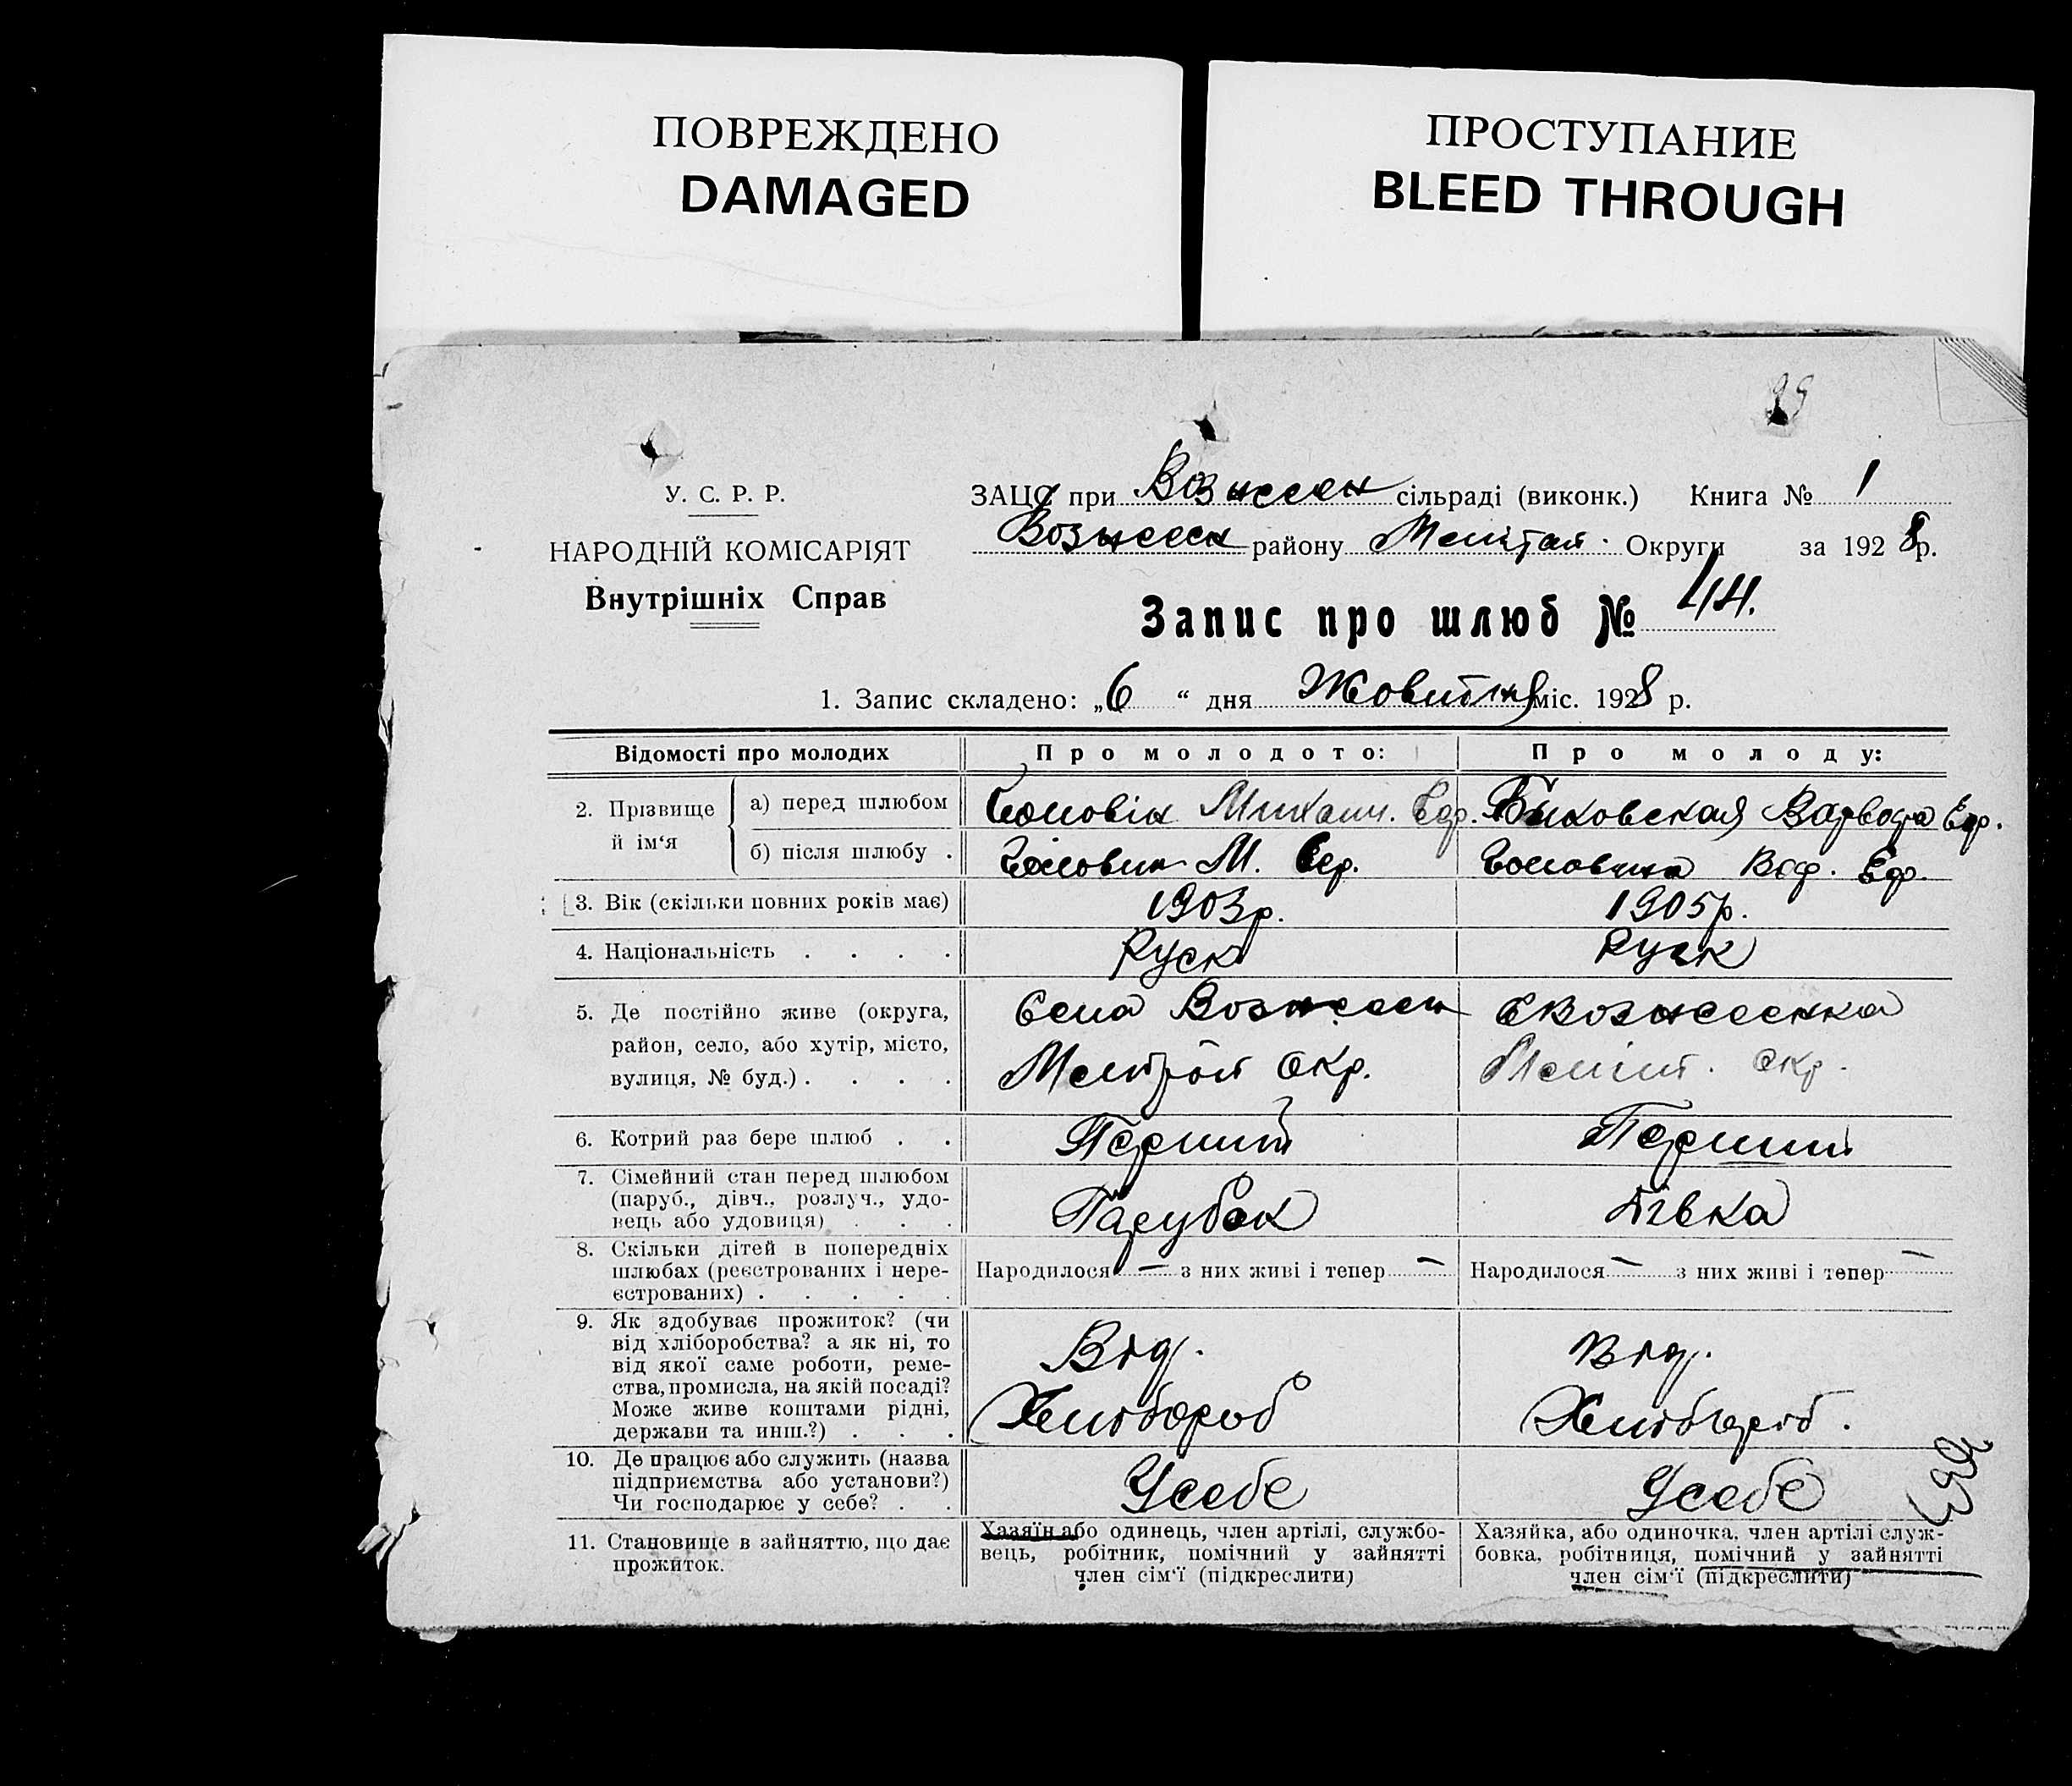 ПОВРЕЖДЕНО
DAMAGED
ПРОСТУПАНИЕ
BLEED THROUGH
У. С. Р. Р.
НАРОДНІЙ КОМІСАРІЯТ
Внутрішніх Справ
ЗАЦС при Вознесен сільраді (виконк.) Книга № 1
Вознесен району Меліт. Округи за 1928 р.
Запис про шлюб № 44.
1. Запис складено: „6“ дня Жовтня міс. 1928 р.
Відомості про молодих
Про молодого:
Про молоду:
2. Прізвище й ім‘я
а) перед шлюбом
Головін Михаил. Еф.
Быковская Варвара Еф.
б) після шлюбу .
Головин М. Еф.
Головина Вар. Еф.
3. Вік (скільки повних років має)
1903р.
1905р.
4. Національність . . . .
Руск
Руск
5. Де постійно живе (округа,
район, село, або хутір, місто,
вулиця, № буд.) . . . .
Села Вознесен
Меліт. Окр.
С Вознесенка
Меліт. Окр.
6. Котрий раз бере шлюб . .
Перший
Перший
7. Сімейний стан перед шлюбом
(паруб., дівч., розлуч., удо-
вець або удовиця) . . .
Парубок
Дівка
8. Скільки дітей в попередніх
шлюбах (реєстрованих і нере-
єстрованих) . . . . .
Народилося — з них живі і тепер —
Народилося — з них живі і тепер —
9. Як здобуває прожиток? (чи
від хліборобства? а як ні, то
від якої саме роботи, реме-
ства, промисла, на якій посаді?
Може живе коштами рідні,
держави та инш.?) . . .
Від.
Хлібороб
Від.
Хлібороб.
10. Де працює або служить (назва
підприємства або установи?)
Чи господарює у себе? . .
Усебе
Усебе
11. Становище в зайняттю, що дає
прожиток.
Хазяїн або одинець, член артілі, службо-
вець, робітник, помічний у зайнятті
член сім‘ї (підкреслити)
Хазяйка, або одиночка, член артілі служ-
бовка, робітниця, помічний у зайнятті
член сім‘ї (підкреслити)